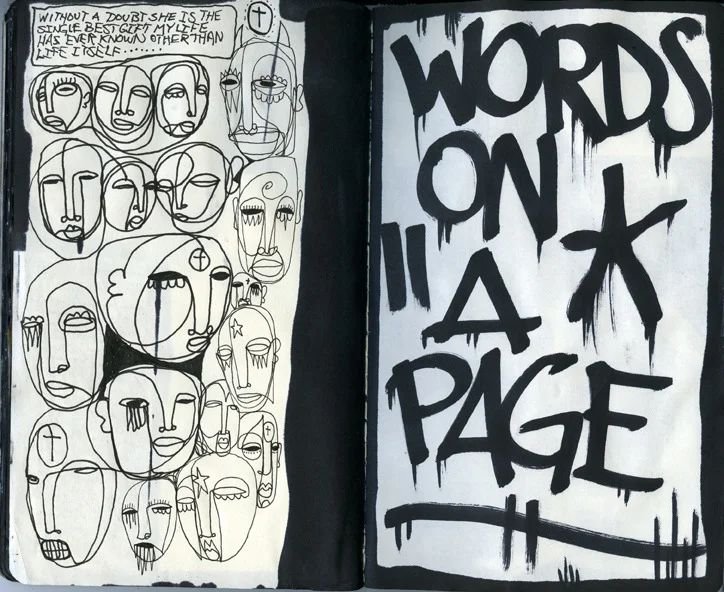 WITHOUT A DOUBT SHE IS THE
SINGLE BEST GIFT MY LIFE
HAS EVER KNOWN OTHER THAN
LIFE ITSELF.......
WORDS
ON
A
PAGE